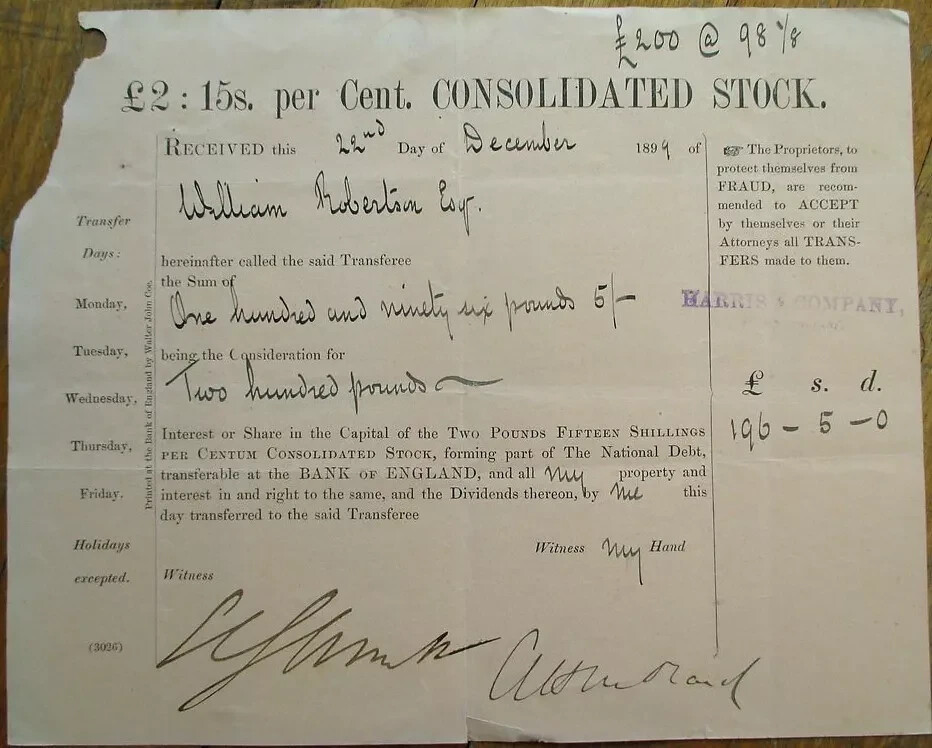 £200 @ 98 1/8
£2 : 15s. per Cent. CONSOLIDATED STOCK.
RECEIVED this 22nd Day of December 1899 of
William Robertson Esqr.
hereinafter called the said Transferee
the Sum of
One hundred and ninety six pounds 5/-
being the Consideration for
Two hundred pounds
Interest or Share in the Capital of the TWO POUNDS FIFTEEN SHILLINGS
PER CENTUM CONSOLIDATED STOCK, forming part of The National Debt,
transferable at the BANK OF ENGLAND, and all my property and
interest in and right to the same, and the Dividends thereon, by me this
day transferred to the said Transferee
Witness my Hand
Witness
Transfer
Days:
Monday,
Tuesday,
Wednesday,
Thursday,
Friday.
Holidays
excepted.
(3026)
Printed at the Bank of England by Walter John Coe.
☞ The Proprietors, to
protect themselves from
FRAUD, are recom-
mended to ACCEPT
by themselves or their
Attorneys all TRANS-
FERS made to them.
HARRIS & COMPANY,
£ s. d.
196 - 5 - 0